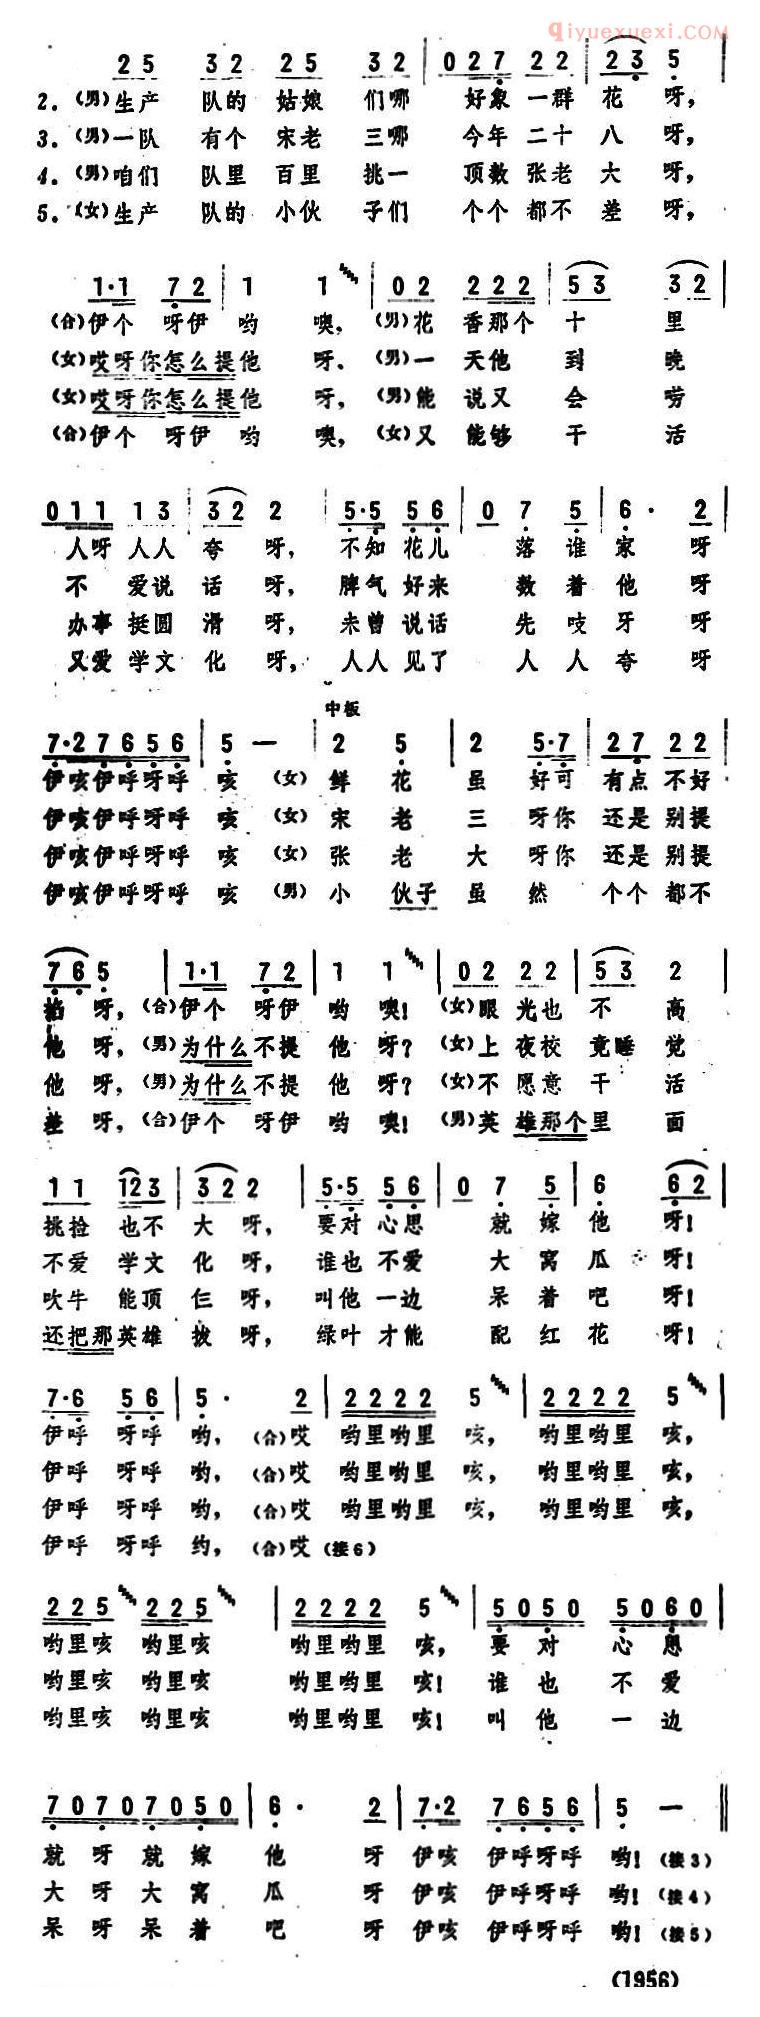 qiyuexuexi.COM
2 5 3 2 2 5 3 2 | 0 2 7 2 2 | 2 3 5 |
2.（男）生产 队的 姑娘 们哪 好象 一群 花 呀，
3.（男）一队 有个 宋老 三哪 今年 二十 八 呀，
4.（男）咱们 队里 百里 挑一 顶数 张老 大 呀，
5.（女）生产 队的 小伙 子们 个个 都不 差 呀，
1·1 7 2 | 1 1 | 0 2 2 2 2 | 5 3 3 2 |
（合）伊个 呀伊 哟 噢，（男）花 香那个 十 里
（女）哎呀你怎么提他 呀．（男）一 天他 到 晚
（女）哎呀你怎么提他 呀，（男）能 说又 会 唠
（合）伊个 呀伊 哟 噢，（女）又 能够 干 活
0 1 1 1 3 | 3 2 2 | 5·5 5 6 | 0 7 5 | 6· 2 |
人呀 人人 夸 呀，不知 花儿 落 谁 家 呀
不 爱说 话 呀，脾气 好来 数 着 他 呀
办事 挺圆 滑 呀，未曾 说话 先 吱 牙 呀
又爱 学文 化 呀，人人 见了 人 人 夸 呀
中板
7·2 7 6 5 6 | 5 — | 2 5 | 2 5·7 | 2 7 2 2 |
伊咳伊呼呀呼 咳 （女）鲜 花 虽 好可 有点 不好
伊咳伊呼呀呼 咳 （女）宋 老 三 呀你 还是 别提
伊咳伊呼呀呼 咳 （女）张 老 大 呀你 还是 别提
伊咳伊呼呀呼 咳 （男）小 伙子 虽 然 个个 都不
7 6 5 | 1·1 7 2 | 1 1 | 0 2 2 2 | 5 3 2 |
掐 呀，（合）伊个 呀伊 哟 噢！（女）眼 光也 不 高
他 呀，（男）为什么不提 他 呀？（女）上 夜校 竟睡 觉
他 呀，（男）为什么不提 他 呀？（女）不 愿意 干 活
差 呀，（合）伊个 呀伊 哟 噢！（男）英 雄那个里 面
1 1 1 2 3 | 3 2 2 | 5·5 5 6 | 0 7 5 | 6 6 2 |
挑捡 也不 大 呀，要对 心思 就 嫁 他 呀！
不爱 学文 化 呀，谁也 不爱 大 窝 瓜 呀！
吹牛 能顶 仨 呀，叫他 一边 呆 着 吧 呀！
还把那英雄 拔 呀，绿叶 才能 配 红 花 呀！
7·6 5 6 | 5· 2 | 2 2 2 2 5 | 2 2 2 2 5 |
伊呼 呀呼 哟，（合）哎 哟里哟里 咳，哟里哟里 咳，
伊呼 呀呼 哟，（合）哎 哟里哟里 咳，哟里哟里 咳，
伊呼 呀呼 哟，（合）哎 哟里哟里 咳，哟里哟里 咳，
伊呼 呀呼 约，（合）哎（接6）
2 2 5 2 2 5 | 2 2 2 2 5 | 5 0 5 0 5 0 6 0 |
哟里咳 哟里咳 哟里哟里 咳，要 对 心 思
哟里咳 哟里咳 哟里哟里 咳！谁 也 不 爱
哟里咳 哟里咳 哟里哟里 咳！叫 他 一 边
7 0 7 0 7 0 5 0 | 6· 2 | 7·2 7 6 5 6 | 5 — ‖
就 呀 就 嫁 他 呀 伊咳 伊呼呀呼 哟！（接3）
大 呀 大 窝 瓜 呀 伊咳 伊呼呀呼 哟！（接4）
呆 呀 呆 着 吧 呀 伊咳 伊呼呀呼 哟！（接5）
（1956）